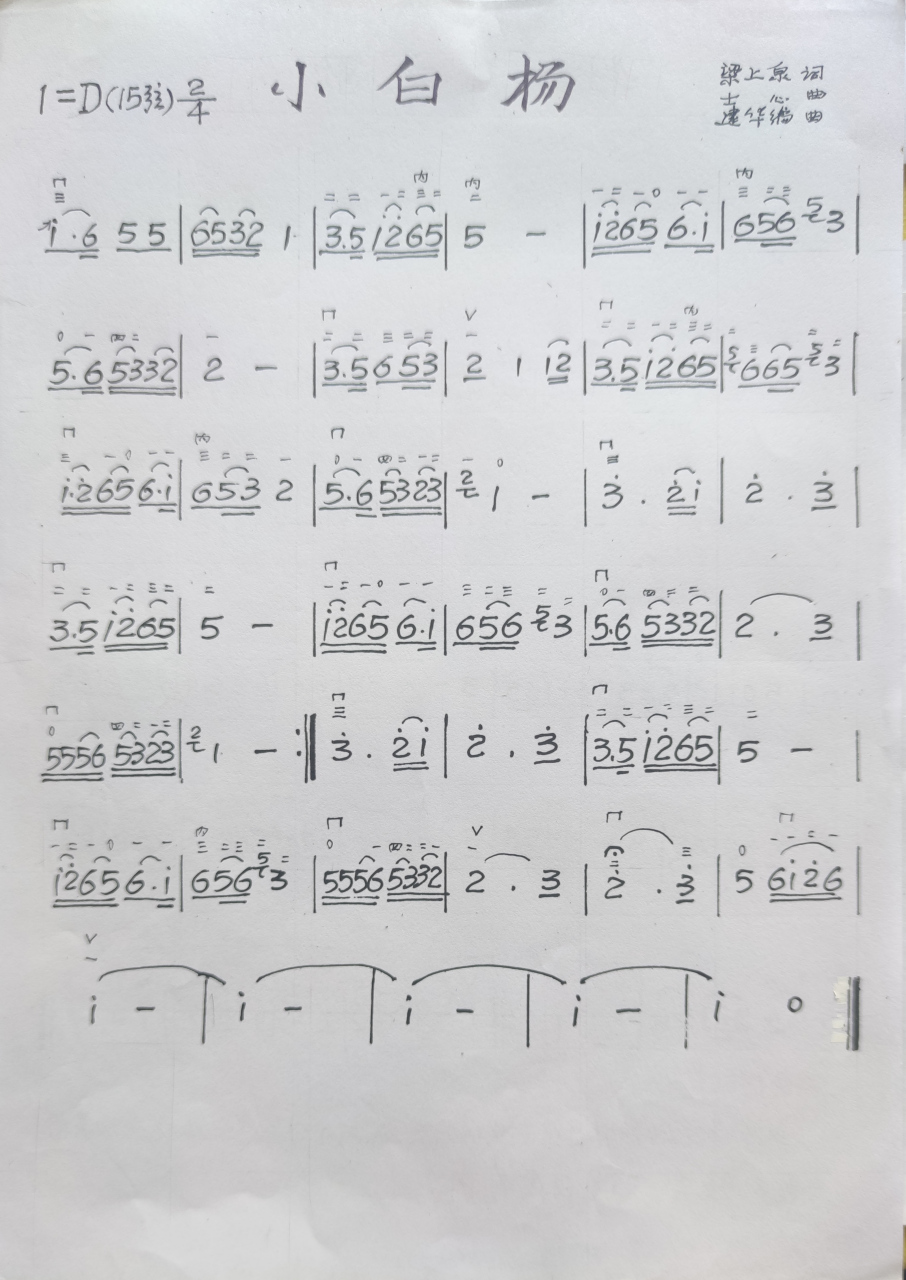 小白杨
1=D(15弦) 2/4
梁上泉 词
士心 曲
建华编曲
i·6 5 5 | 6532 1 | 3.5 i265 | 5 - | i265 6·i | 656 5 3 |
5·6 5332 | 2 - | 3.5 653 | 2 1 12 | 3.5 i265 | 5 665 5 3 |
i·265 6·i | 653 2 | 5·6 5323 | 2 1 - | 3 . 2i | 2 . 3 |
3.5 i265 | 5 - | i265 6·i | 656 5 3 | 5·6 5332 | 2 . 3 |
5556 5323 | 2 1 - :‖ 3 . 2i | 2 . 3 | 3.5 i265 | 5 - |
i265 6·i | 656 5 3 | 5556 5332 | 2 . 3 | 2 . 3 | 5 6i26 |
i - | i - | i - | i - | i 0 ‖